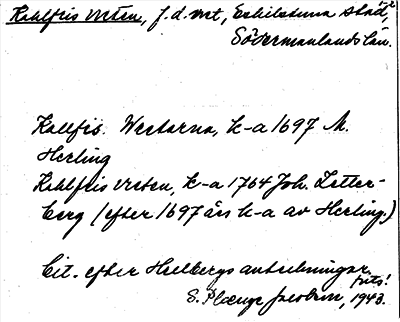 Kahlfris vreten, f.d. mt, Eskilstuna stad,
Södermanlands län.
Kallfis. Wretarna, k-a 1697 M.
Herling
Kahlfris vreten, k-a 1764 Joh. Zetter-
berg (efter 1697 års k-a av Herling.)
Cit. efter Hellbergs anteckningar.
forts!
S. Plænge Jacobson, 1943.